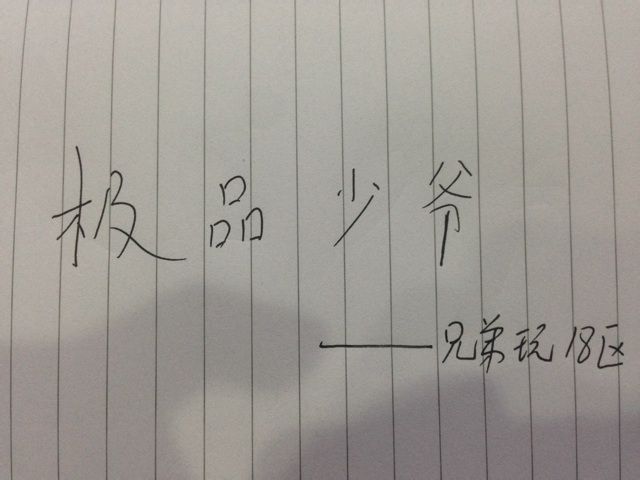 极品少爷
——兄弟玩18区